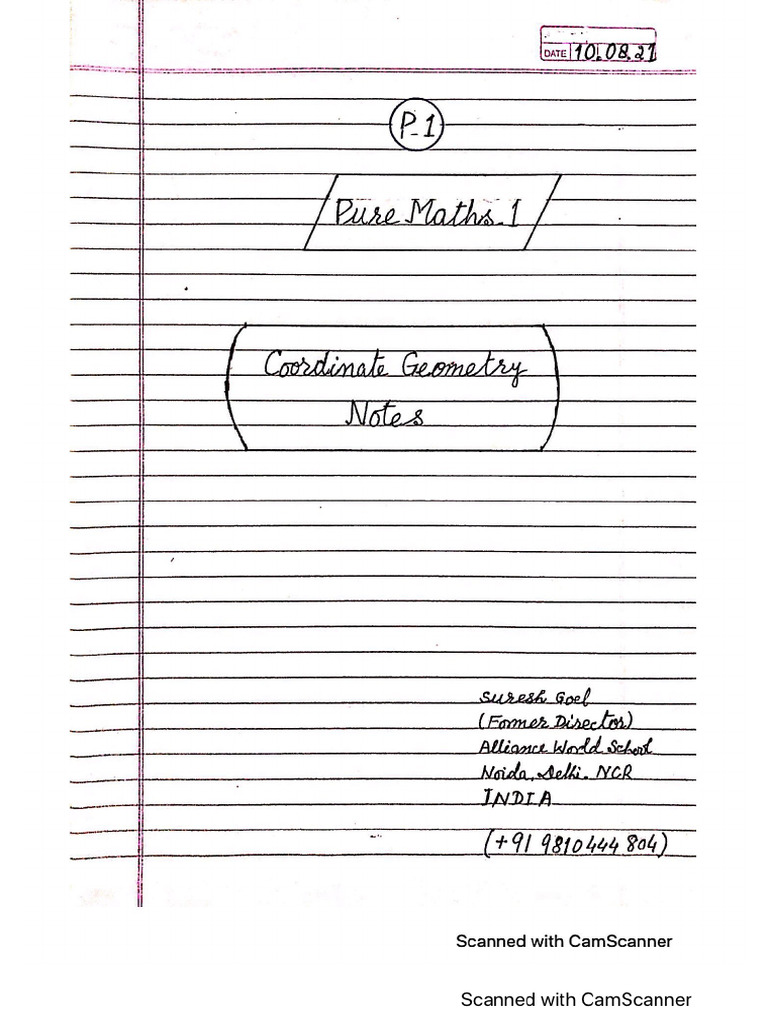 DATE 10.08.21
P-1
Pure Maths.1
Coordinate Geometry
Notes
Suresh Goel
(Fomer Director)
Alliance World School
Noida, Delhi. NCR
INDIA
(+91 9810444804)
Scanned with CamScanner
Scanned with CamScanner